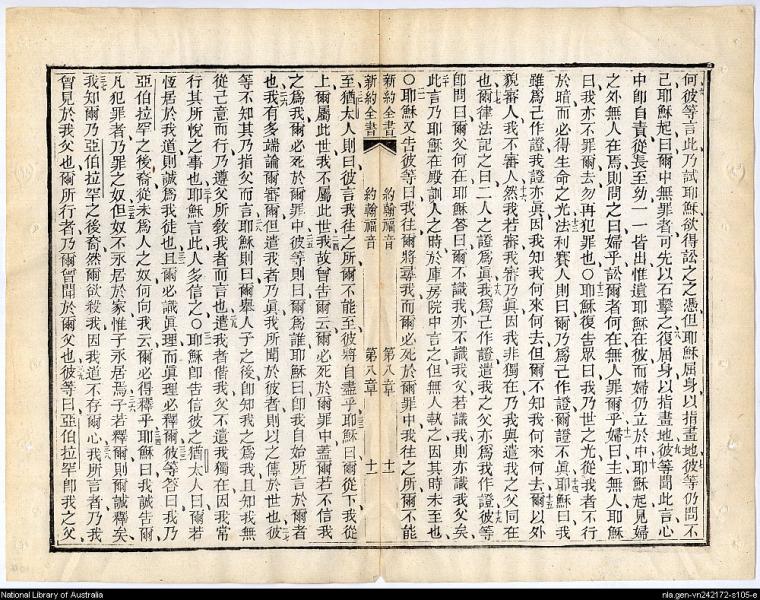 何彼等言此乃試耶穌欲得訟之之憑但耶穌屈身以指畫地彼等仍問不
已耶穌起曰爾中無罪者可先以石擊之復屈身以指畫地彼等聞此言心
中卽自責從長至幼一一皆出惟遺耶穌在彼而婦仍立於中耶穌起見婦
之外無人在焉則問之曰婦乎訟爾者何在無人罪爾乎婦曰主無人耶穌
曰我亦不罪爾去勿再犯罪也〇耶穌復告眾曰我乃世之光從我者不行
於暗而必得生命之光法利賽人則曰爾乃爲己作證爾證不眞耶穌曰我
雖爲己作證我證亦眞因我知我何來何去但爾不知我何來何去爾以外
貌審人我不審人然我若審我審乃眞因我非獨在乃我與遣我之父同在
也爾律法記之曰二人之證爲眞我爲己作證遣我之父亦爲我作證彼等
卽問曰爾父何在耶穌答曰爾不識我亦不識我父若識我則亦識我父矣
此言乃耶穌在殿訓人之時於庫房院中言之但無人執之因其時未至也
〇耶穌又告彼等曰我往爾將尋我而必死於爾罪中我往之所爾不能
新約全書 約翰福音 第八章 十一
新約全書 約翰福音 第八章 十一
至猶太人則曰彼言我往之所爾不能至彼將自盡乎耶穌曰爾從下我從
上爾屬此世我不屬此世我故曾告爾云爾必死於爾罪中蓋爾若不信我
之爲我爾必死於爾罪中彼等則曰爾爲誰耶穌曰卽我自始所言於爾者
也我有多端論爾審爾但遣我者乃眞我所聞於彼者則以之傳於世也彼
等不知其乃指父而言耶穌則曰爾舉人子之後卽知我之爲我且知我無
從己意而行乃遵父所教我者而言也遣我者偕我父不遺我獨在因我常
行其所悅之事也耶穌言此人多信之〇耶穌卽告信彼之猶太人曰爾若
恆居於我道則誠爲我徒也且爾必識眞理而眞理必釋爾彼等答曰我乃
亞伯拉罕之後裔從未爲人之奴何向我云爾必得釋乎耶穌曰我誠告爾
凡犯罪者乃罪之奴但奴不永居於家惟子永居焉子若釋爾則爾誠釋矣
我知爾乃亞伯拉罕之後裔然爾欲殺我因我道不存爾心我所言者乃我
曾見於我父也爾所行者乃爾曾聞於爾父也彼等曰亞伯拉罕卽我之父
National Library of Australia
nla.gen-vn242172-s105-e